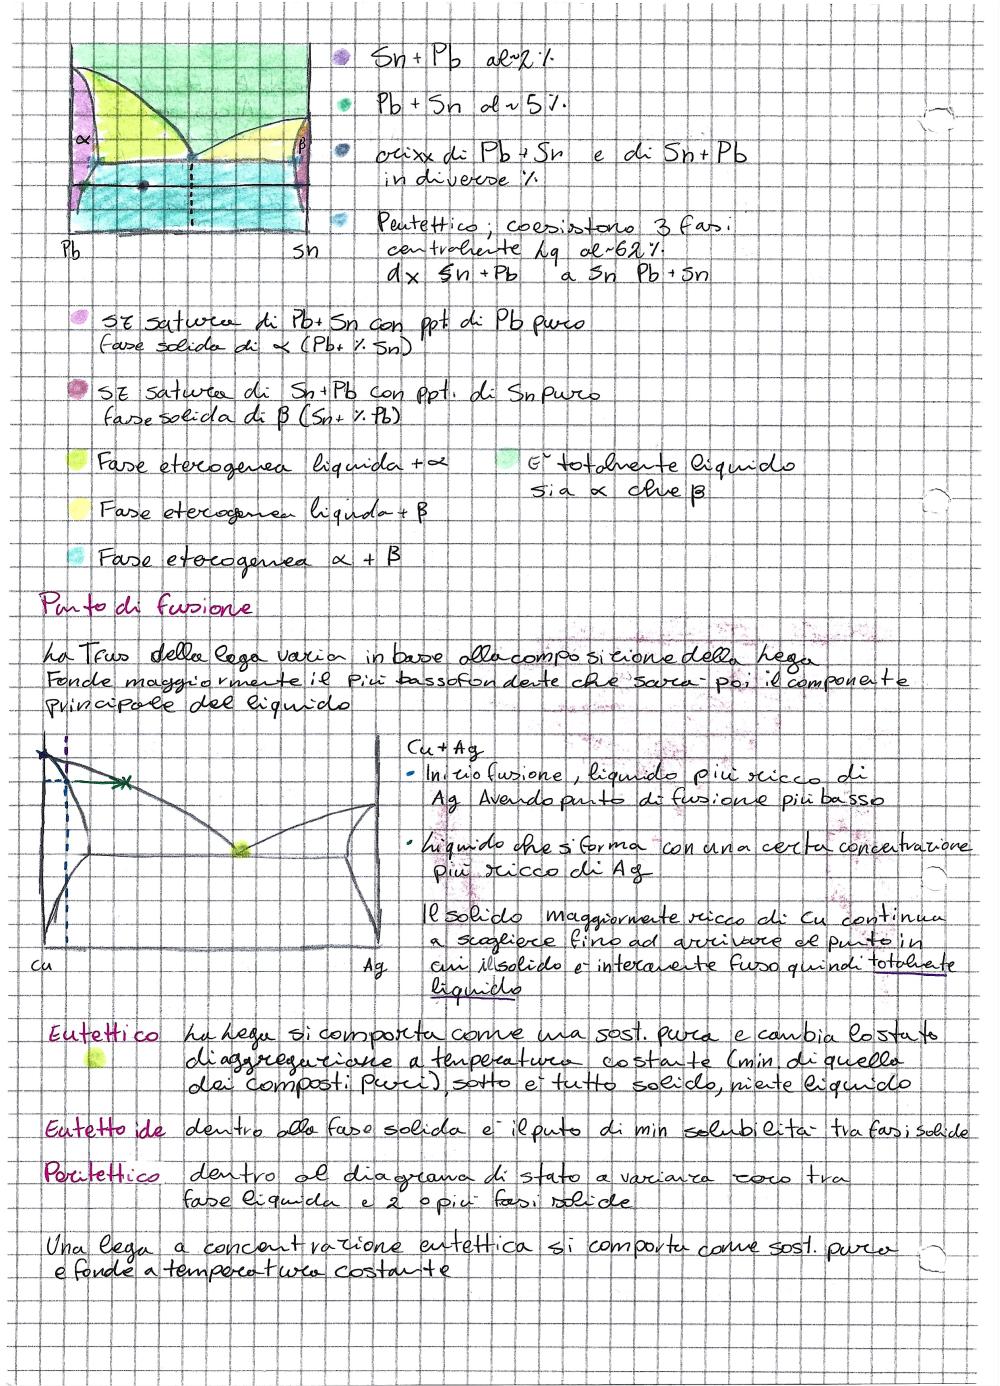 α
β
Pb
Sn
Sn + Pb al ~2%
Pb + Sn al ~5%
di Pb + Sn e di Sn + Pb
in diverse %
Peutettico; coesistono 3 fasi
centralmente Lq al ~62%
dx Sn + Pb a Sn Pb + Sn
satura di Pb + Sn con ppt di Pb puro
fase solida di α (Pb + % Sn)
satura di Sn + Pb con ppt. di Sn puro
fase solida di β (Sn + % Pb)
Fase eterogenea liquida + α
E' totalmente liquido
sia α che β
Fase eterogenea liquida + β
Fase eterogenea α + β
Punto di fusione
La Tfus della lega varia in base alla composizione della lega
Fonde maggiormente il più bassofondente che sarà poi il componente
principale del liquido
Cu
Ag
Cu + Ag
• Inizio fusione, liquido più ricco di
Ag Avendo punto di fusione più basso
• Liquido che si forma con una certa concentrazione
più ricco di Ag
Il solido maggiormente ricco di Cu continua
a scogliere fino ad arrivare al punto in
cui il solido è interamente fuso quindi totalmente
liquido
Eutettico La lega si comporta come una sost. pura e cambia lo stato
di aggregazione a temperatura costante (min di quella
dei composti puri), sotto è tutto solido, niente liquido
Eutettoide dentro alla fase solida è il puto di min solubilità tra fasi solide
Peritettico dentro al diagrama di stato a varianza zero tra
fase liquida e 2 o più fasi solide
Una lega a concentrazione eutettica si comporta come sost. pura
e fonde a temperatura costante